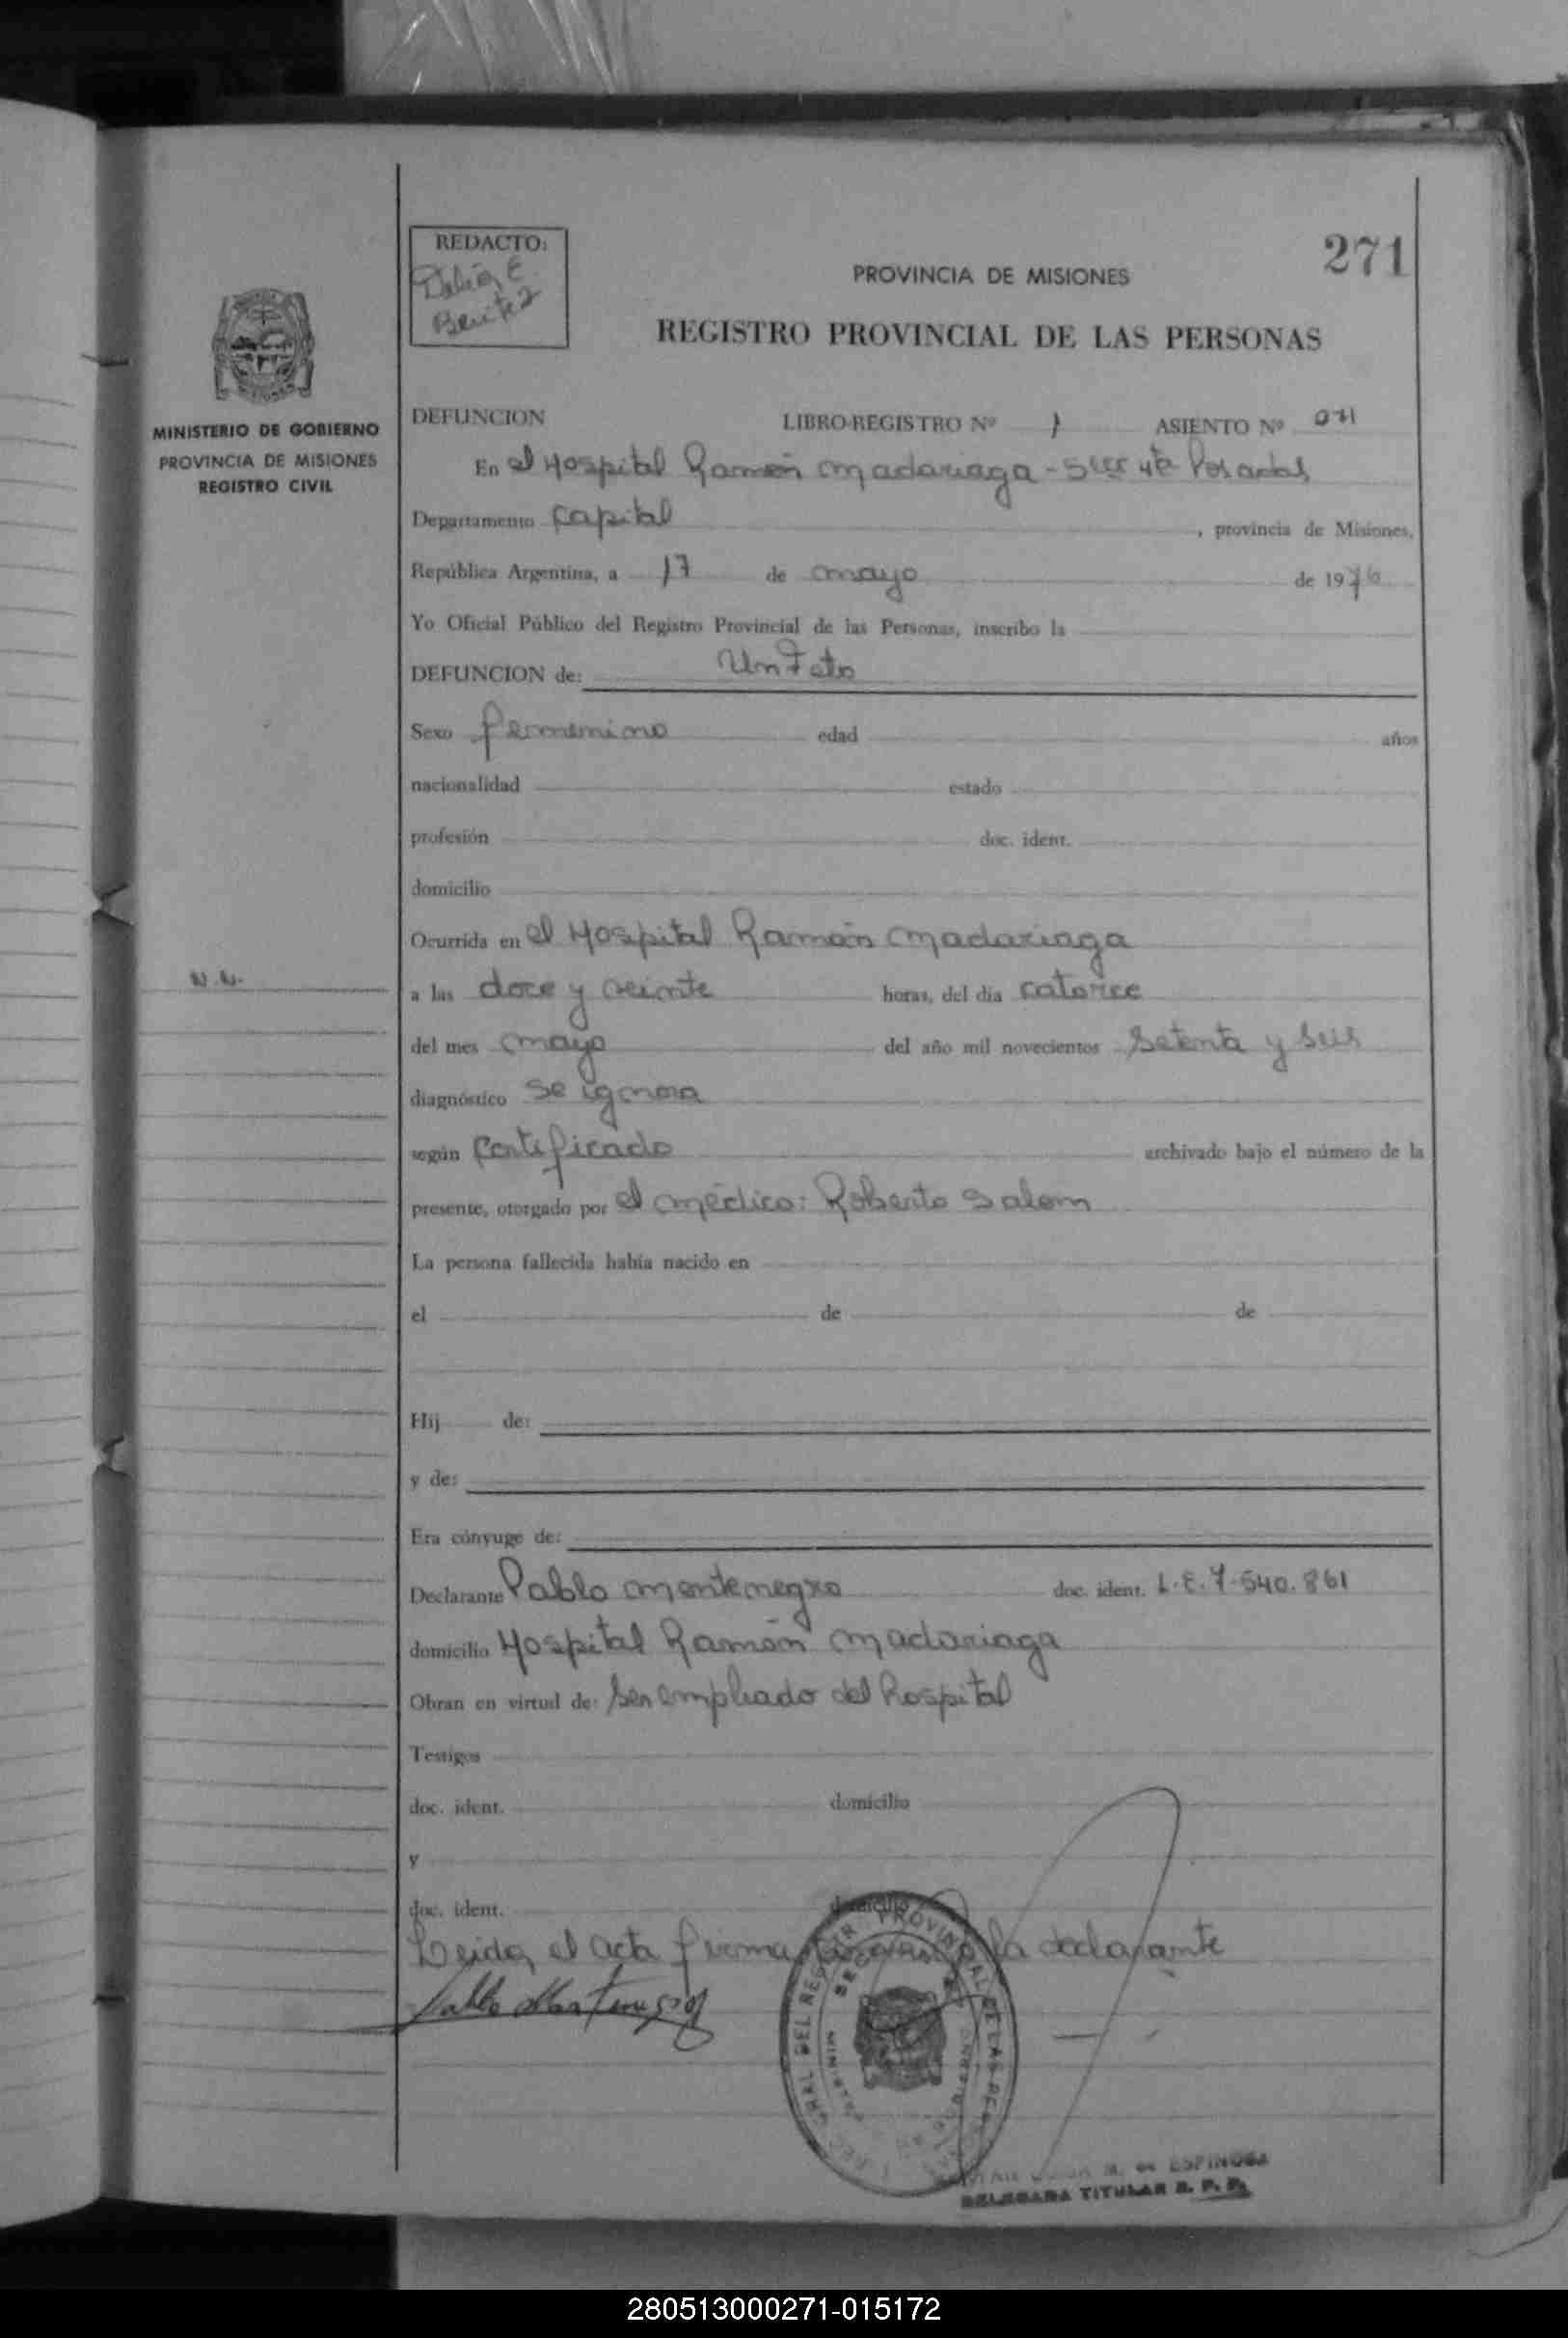 REDACTO:
Benitez
271
PROVINCIA DE MISIONES
REGISTRO PROVINCIAL DE LAS PERSONAS
MINISTERIO DE GOBIERNO
PROVINCIA DE MISIONES
REGISTRO CIVIL
DEFUNCION LIBRO-REGISTRO Nº 1 ASIENTO Nº 071
En el Hospital Ramón Madariaga - Secc 4ta Posadas
Departamento Capital, provincia de Misiones,
República Argentina, a 17 de mayo de 1976
Yo Oficial Público del Registro Provincial de las Personas, inscribo la
DEFUNCION de: Un Feto
Sexo femenino edad años
nacionalidad estado
profesión doc. ident.
domicilio
Ocurrida en el Hospital Ramón Madariaga
N.N.
a las doce y veinte horas, del día catorce
del mes mayo del año mil novecientos setenta y seis
diagnóstico se ignora
según certificado archivado bajo el número de la
presente, otorgado por el médico: Roberto Salom
La persona fallecida había nacido en
el de de
Hij de:
y de:
Era cónyuge de:
Declarante Pablo Montenegro doc. ident. L.E. 7.540.861
domicilio Hospital Ramón Madariaga
Obran en virtud de: ser empleado del hospital
Testigos
doc. ident. domicilio
y
doc. ident. domicilio
Leida el acta firma la declarante
Pablo Montenegro
M. de ESPINOSA
DELEGADA TITULAR R. P. P.
280513000271-015172